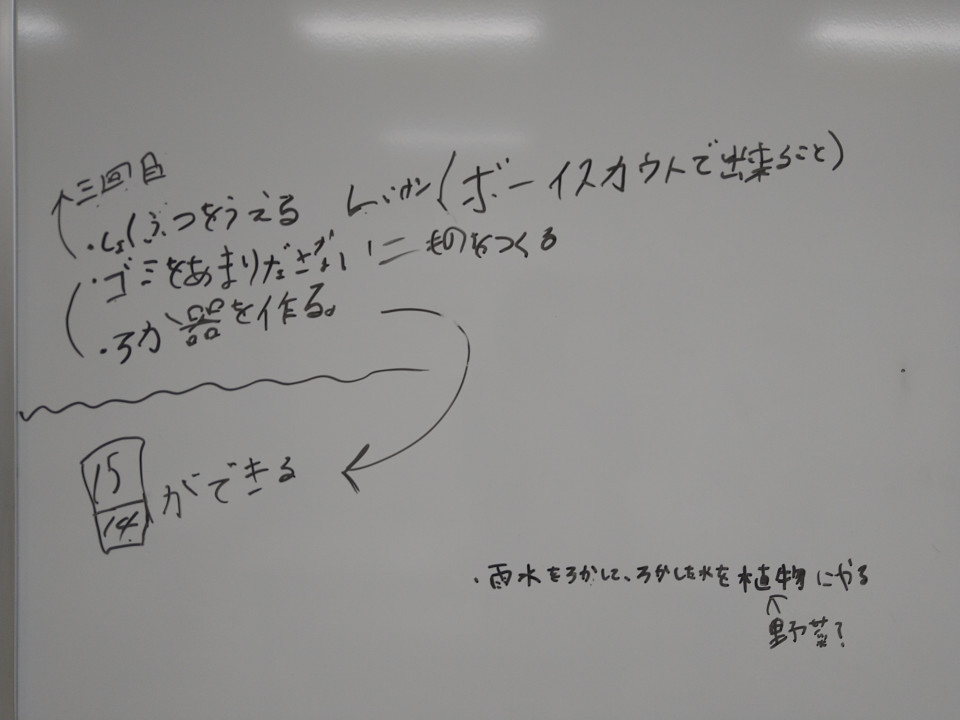 ↑三回目
・しょくぶつをうえる
じっけん(ボーイスカウトで出来ること)
・ゴミをあまりださない
ものをつくる
・ろか器を作る。
15
14
ができる
・雨水をろかして、ろかした水を植物にやる
野菜?